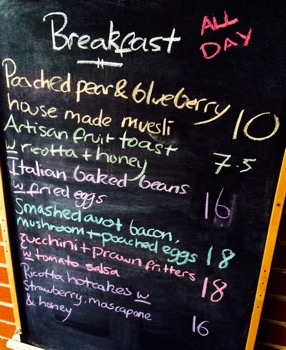 Breakfast ALL DAY
Poached pear & blueberry
house made muesli 10
Artisan fruit toast
w ricotta + honey 7.5
Italian baked beans
w fried eggs 16
Smashed avot bacon,
mushroom + poached eggs 18
zucchini + prawn fritters
w tomato salsa 18
Ricotta hotcakes w
Strawberry, mascapone
& honey 16